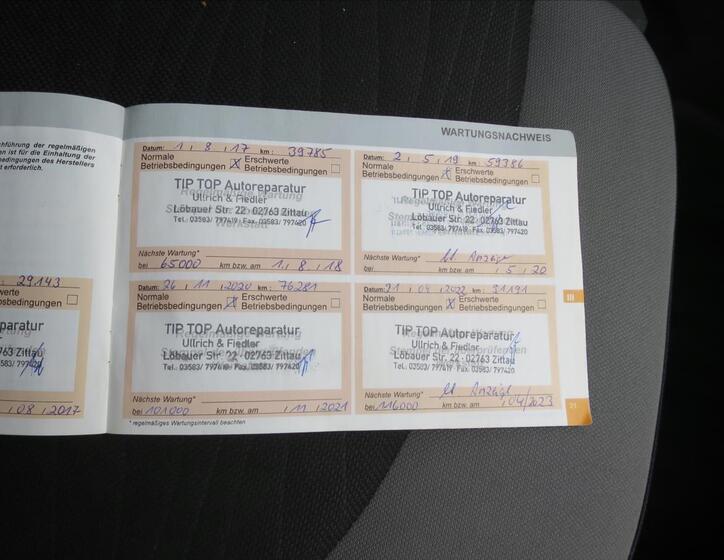 chführung der regelmäßigen
en ist für die Einhaltung der
bedingungen des Herstellers
t erforderlich.
29143
werte
bsbedingungen
paratur
763 Zittau
797420
, 08 , 2017
WARTUNGSNACHWEIS
Datum: 1 , 8 , 17 km: 39785
Normale Betriebsbedingungen X Erschwerte Betriebsbedingungen
Regelmäßige Wartung
TIP TOP Autoreparatur
Ullrich & Fiedler
Löbauer Str. 22 · 02763 Zittau
Tel. 03583/ 797419 · Fax. 03583/ 797420
Werkstatt
Nächste Wartung*
bei 65000 km bzw. am 1 , 8 , 18
Datum: 2 , 5 , 19 km: 59386
Normale Betriebsbedingungen X Erschwerte Betriebsbedingungen
TIP TOP Autoreparatur
Ullrich & Fiedler
Löbauer Str. 22 · 02763 Zittau
Tel. 03583/ 797419 · Fax. 03583/ 797420
Nächste Wartung*
bei lt. Anzeige km bzw. am , 5 , 20
Datum: 26 , 11 , 2020 km: 76281
Normale Betriebsbedingungen X Erschwerte Betriebsbedingungen
TIP TOP Autoreparatur
Ullrich & Fiedler
Löbauer Str. 22 · 02763 Zittau
Tel. 03583/ 797419 · Fax. 03583/ 797420
Nächste Wartung*
bei 101000 km bzw. am , 11 , 2021
Datum: 21 , 04 , 2022 km: 91191
Normale Betriebsbedingungen X Erschwerte Betriebsbedingungen
TIP TOP Autoreparatur
Ullrich & Fiedler
Löbauer Str. 22 · 02763 Zittau
Tel. 03583/ 797419 · Fax. 03583/ 797420
Nächste Wartung* lt. Anzeige
bei 116000 km bzw. am , 04/2023
* regelmäßiges Wartungsintervall beachten
III
21